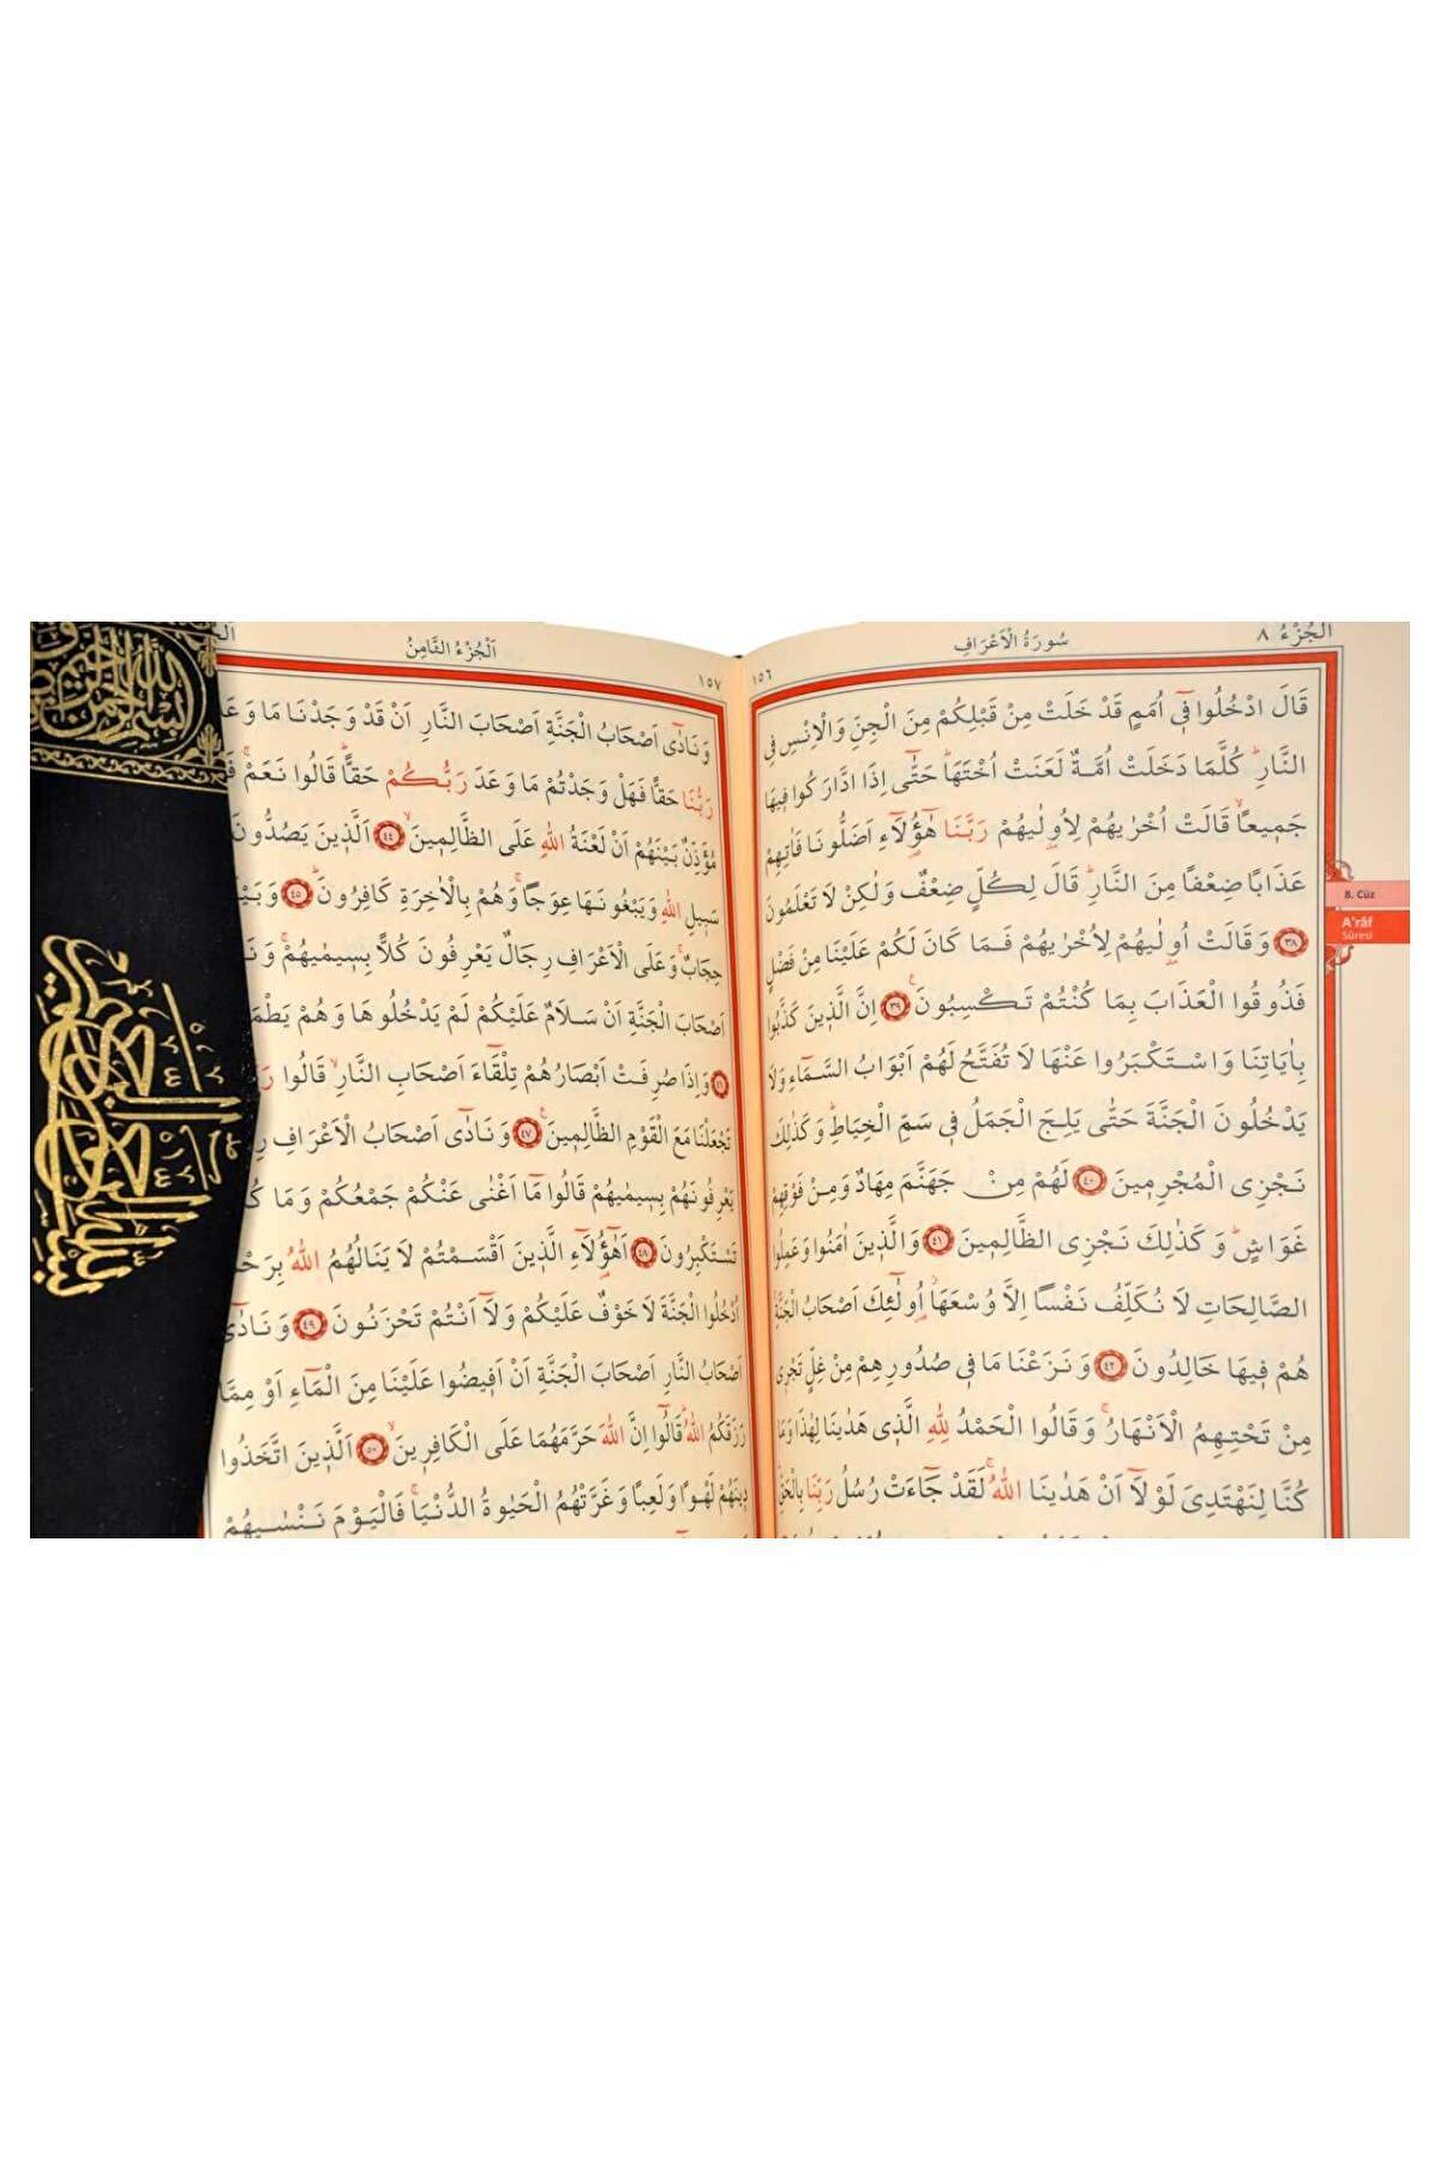 الجزء ٨
سُورَةُ الْاَعْرَافِ
١٥٦
قَالَ ادْخُلُوا فٖٓي اُمَمٍ قَدْ خَلَتْ مِنْ قَبْلِكُمْ مِنَ الْجِنِّ وَالْاِنْسِ فِي
النَّارِؕ كُلَّمَا دَخَلَتْ اُمَّةٌ لَعَنَتْ اُخْتَهَاؕ حَتّٰٓى اِذَا ادَّارَكُوا فٖيهَا
جَمٖيعًاۙ قَالَتْ اُخْرٰيهُمْ لِاُو۫لٰيهُمْ رَبَّنَا هٰٓؤُ۬لَٓاءِ اَضَلُّونَا فَاٰتِهِمْ
عَذَابًا ضِعْفًا مِنَ النَّارِؕ قَالَ لِكُلٍّ ضِعْفٌ وَلٰكِنْ لَا تَعْلَمُونَ
﴿٣٨﴾ وَقَالَتْ اُو۫لٰيهُمْ لِاُخْرٰيهُمْ فَمَا كَانَ لَكُمْ عَلَيْنَا مِنْ فَضْلٍ
فَذُوقُوا الْعَذَابَ بِمَا كُنْتُمْ تَكْسِبُونَ۟ ﴿٣٩﴾ اِنَّ الَّذٖينَ كَذَّبُوا
بِاٰيَاتِنَا وَاسْتَكْبَرُوا عَنْهَا لَا تُفَتَّحُ لَهُمْ اَبْوَابُ السَّمَٓاءِ وَلَا
يَدْخُلُونَ الْجَنَّةَ حَتّٰى يَلِجَ الْجَمَلُ فٖي سَمِّ الْخِيَاطِؕ وَكَذٰلِكَ
نَجْزِي الْمُجْرِمٖينَ ﴿٤٠﴾ لَهُمْ مِنْ جَهَنَّمَ مِهَادٌ وَمِنْ فَوْقِهِمْ
غَوَاشٍؕ وَكَذٰلِكَ نَجْزِي الظَّالِمٖينَ ﴿٤١﴾ وَالَّذٖينَ اٰمَنُوا وَعَمِلُوا
الصَّالِحَاتِ لَا نُكَلِّفُ نَفْسًا اِلَّا وُسْعَهَاۘ اُو۬لٰٓئِكَ اَصْحَابُ الْجَنَّةِۚ
هُمْ فٖيهَا خَالِدُونَ ﴿٤٢﴾ وَنَزَعْنَا مَا فٖي صُدُورِهِمْ مِنْ غِلٍّ تَجْرٖي
مِنْ تَحْتِهِمُ الْاَنْهَارُۚ وَقَالُوا الْحَمْدُ لِلّٰهِ الَّذٖي هَدٰينَا لِهٰذَا وَمَا
كُنَّا لِنَهْتَدِيَ لَوْلَٓا اَنْ هَدٰينَا اللّٰهُۚ لَقَدْ جَٓاءَتْ رُسُلُ رَبِّنَا بِالْحَقِّ
8. Cüz
A'râf
Sûresi
اَلْجُزْءُ الثَّامِنُ
١٥٧
وَنَادٰٓى اَصْحَابُ الْجَنَّةِ اَصْحَابَ النَّارِ اَنْ قَدْ وَجَدْنَا مَا
رَبُّنَا حَقًّا فَهَلْ وَجَدْتُمْ مَا وَعَدَ رَبُّكُمْ حَقًّاؕ قَالُوا نَعَمْۚ
مُؤَذِّنٌ بَيْنَهُمْ اَنْ لَعْنَةُ اللّٰهِ عَلَى الظَّالِمٖينَۙ ﴿٤٤﴾ اَلَّذٖينَ يَصُدُّونَ
سَبٖيلِ اللّٰهِ وَيَبْغُونَهَا عِوَجًاۚ وَهُمْ بِالْاٰخِرَةِ كَافِرُونَۘ ﴿٤٥﴾
حِجَابٌۚ وَعَلَى الْاَعْرَافِ رِجَالٌ يَعْرِفُونَ كُلًّا بِسٖيمٰيهُمْۚ
اَصْحَابَ الْجَنَّةِ اَنْ سَلَامٌ عَلَيْكُمْ لَمْ يَدْخُلُوهَا وَهُمْ
﴿٤٦﴾ وَاِذَا صُرِفَتْ اَبْصَارُهُمْ تِلْقَٓاءَ اَصْحَابِ النَّارِۙ قَالُوا
تَجْعَلْنَا مَعَ الْقَوْمِ الظَّالِمٖينَ۟ ﴿٤٧﴾ وَنَادٰٓى اَصْحَابُ الْاَعْرَافِ
يَعْرِفُونَهُمْ بِسٖيمٰيهُمْ قَالُوا مَٓا اَغْنٰى عَنْكُمْ جَمْعُكُمْ وَمَا
تَسْتَكْبِرُونَ ﴿٤٨﴾ اَهٰٓؤُ۬لَٓاءِ الَّذٖينَ اَقْسَمْتُمْ لَا يَنَالُهُمُ اللّٰهُ
اُدْخُلُوا الْجَنَّةَ لَا خَوْفٌ عَلَيْكُمْ وَلَٓا اَنْتُمْ تَحْزَنُونَ ﴿٤٩﴾ وَنَادٰٓى
اَصْحَابُ النَّارِ اَصْحَابَ الْجَنَّةِ اَنْ اَفٖيضُوا عَلَيْنَا مِنَ الْمَٓاءِ اَوْ مِمَّا
رَزَقَكُمُ اللّٰهُؕ قَالُٓوا اِنَّ اللّٰهَ حَرَّمَهُمَا عَلَى الْكَافِرٖينَۙ ﴿٥٠﴾ اَلَّذٖينَ اتَّخَذُوا
دٖينَهُمْ لَهْوًا وَلَعِبًا وَغَرَّتْهُمُ الْحَيٰوةُ الدُّنْيَاۚ فَالْيَوْمَ نَنْسٰيهُمْ